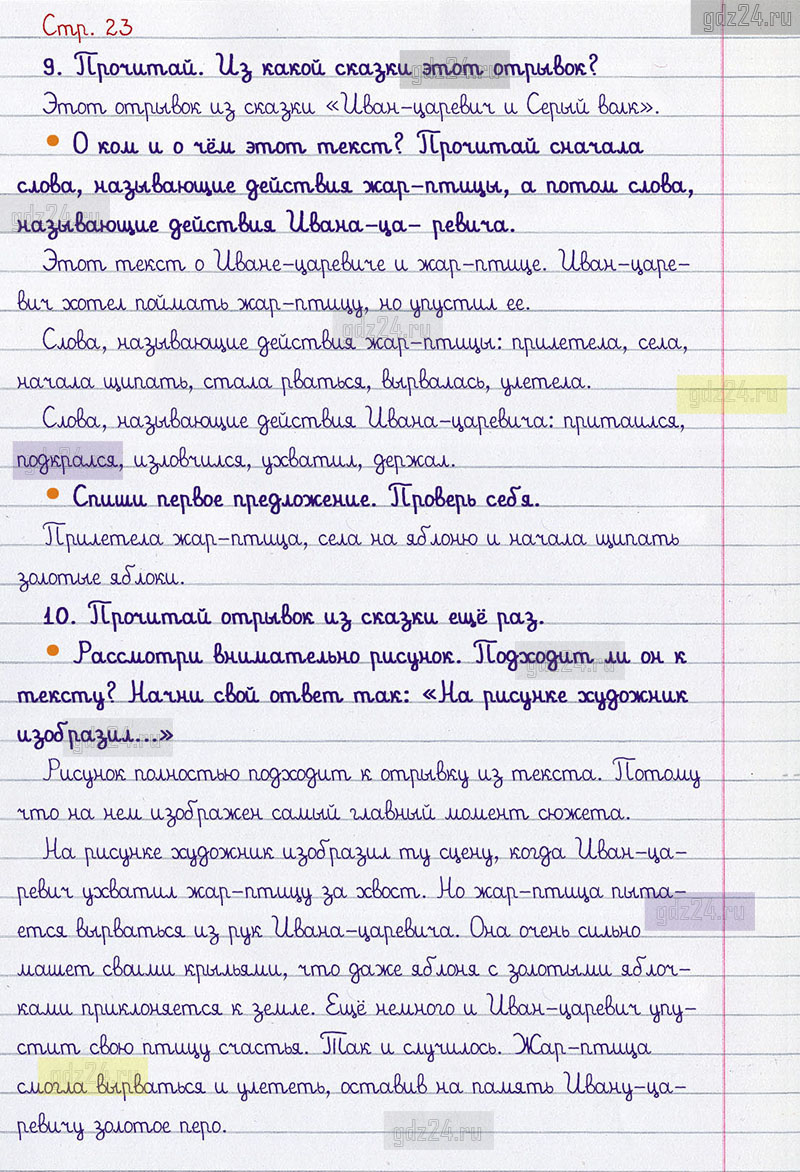 gdz24.ru
Стр. 23
9. Прочитай. Из какой сказки этот отрывок?
gdz24.ru
Этот отрывок из сказки «Иван-царевич и Серый волк».
• О ком и о чём этот текст? Прочитай сначала
слова, называющие действия жар-птицы, а потом слова,
gdz24.ru
называющие действия Ивана-ца- ревича.
Этот текст о Иване-царевиче и жар-птице. Иван-царе-
вич хотел поймать жар-птицу, но упустил ее.
gdz24.ru
Слова, называющие действия жар-птицы: прилетела, села,
начала щипать, стала рваться, вырвалась, улетела.
gdz24.ru
Слова, называющие действия Ивана-царевича: притаился,
подкрался, изловчился, ухватил, держал.
gdz24.ru
• Спиши первое предложение. Проверь себя.
Прилетела жар-птица, села на яблоню и начала щипать
золотые яблоки.
10. Прочитай отрывок из сказки ещё раз.
• Рассмотри внимательно рисунок. Подходит ли он к
gdz24.ru
тексту? Начни свой ответ так: «На рисунке художник
изобразил...»
gdz24.ru
Рисунок полностью подходит к отрывку из текста. Потому
что на нем изображен самый главный момент сюжета.
На рисунке художник изобразил ту сцену, когда Иван-ца-
ревич ухватил жар-птицу за хвост. Но жар-птица пыта-
gdz24.ru
ется вырваться из рук Ивана-царевича. Она очень сильно
машет своими крыльями, что даже яблоня с золотыми яблоч-
ками приклоняется к земле. Ещё немного и Иван-царевич упу-
стит свою птицу счастья. Так и случилось. Жар-птица
gdz24.ru
смогла вырваться и улететь, оставив на память Ивану-ца-
ревичу золотое перо.
gdz24.ru